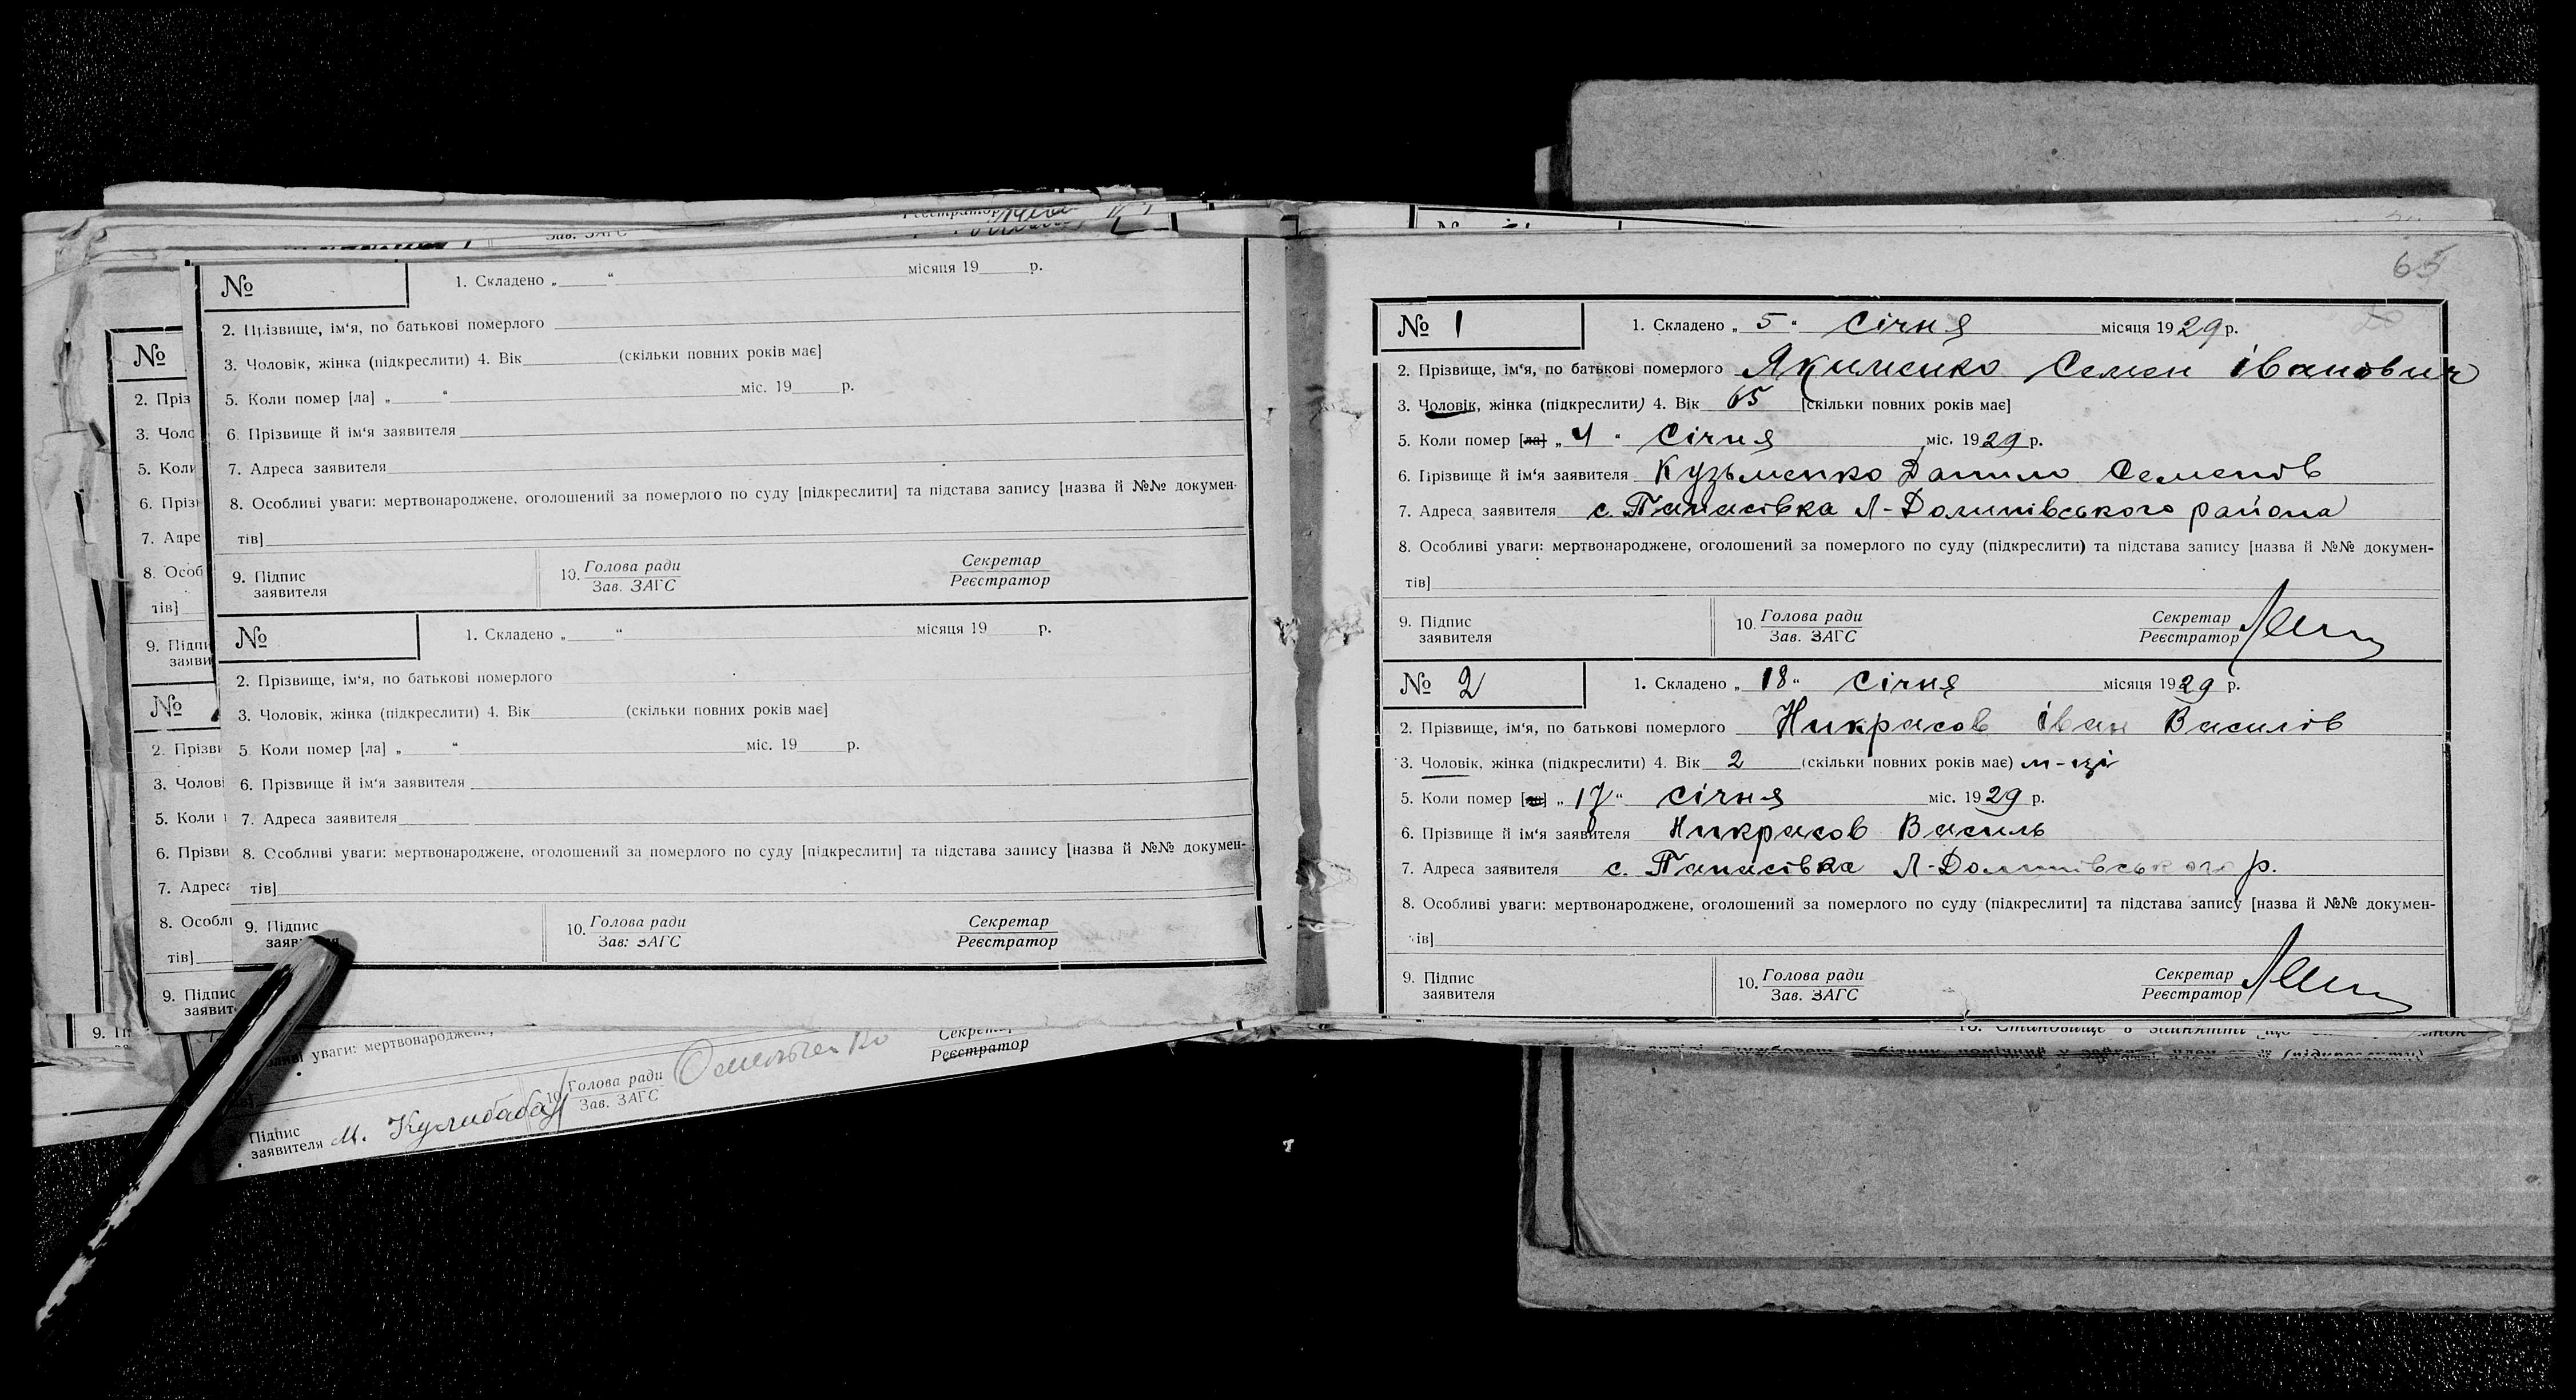 №
1. Складено „ “ місяця 19 р.
2. Прізвище, ім‘я, по батькові померлого
3. Чоловік, жінка (підкреслити) 4. Вік (скільки повних років має]
5. Коли помер [ла] „ “ міс. 19 р.
6. Прізвище й ім‘я заявителя
7. Адреса заявителя
8. Особливі уваги: мертвонароджене, оголошений за померлого по суду [підкреслити] та підстава запису [назва й №№ докумен-
тів]
9. Підпис заявителя 10. Голова ради Зав. ЗАГС Секретар Реєстратор
№
1. Складено „ “ місяця 19 р.
2. Прізвище, ім‘я, по батькові померлого
3. Чоловік, жінка (підкреслити) 4. Вік (скільки повних років має]
5. Коли помер [ла] „ “ міс. 19 р.
6. Прізвище й ім‘я заявителя
7. Адреса заявителя
8. Особливі уваги: мертвонароджене, оголошений за померлого по суду [підкреслити] та підстава запису [назва й №№ докумен-
тів]
9. Підпис 10. Голова ради Зав: ЗАГС Секретар Реєстратор
уваги: мертвонароджене,
Підпис заявителя М. Кулибаба 10 Голова ради Зав. ЗАГС Омельченко Реєстратор
65
№ 1
1. Складено „ 5 “ Січня місяця 1929 р.
2. Прізвище, ім‘я, по батькові померлого Якименко Семен Іванович
3. Чоловік, жінка (підкреслити) 4. Вік 65 [скільки повних років має]
5. Коли помер [ла] „ 4 “ Січня міс. 1929 р.
6. Прізвище й ім‘я заявителя Кузьменко Данило Семенів
7. Адреса заявителя с. Панасівка Л-Долинівського района
8. Особливі уваги: мертвонароджене, оголошений за померлого по суду (підкреслити) та підстава запису [назва й №№ докумен-
тів]
9. Підпис заявителя 10. Голова ради Зав. ЗАГС Секретар Реєстратор
№ 2
1. Складено „ 18 “ Січня місяця 1929 р.
2. Прізвище, ім‘я, по батькові померлого Никрасов Іван Василів
3. Чоловік, жінка (підкреслити) 4. Вік 2 (скільки повних років має) м-ці
5. Коли помер [ла] „ 17 “ січня міс. 1929 р.
6. Прізвище й ім‘я заявителя Никрасов Василь
7. Адреса заявителя с. Панасівка Л-Долинівського р.
8. Особливі уваги: мертвонароджене, оголошений за померлого по суду (підкреслити] та підстава запису [назва й №№ докумен-
ів]
9. Підпис заявителя 10. Голова ради Зав. ЗАГС Секретар Реєстратор